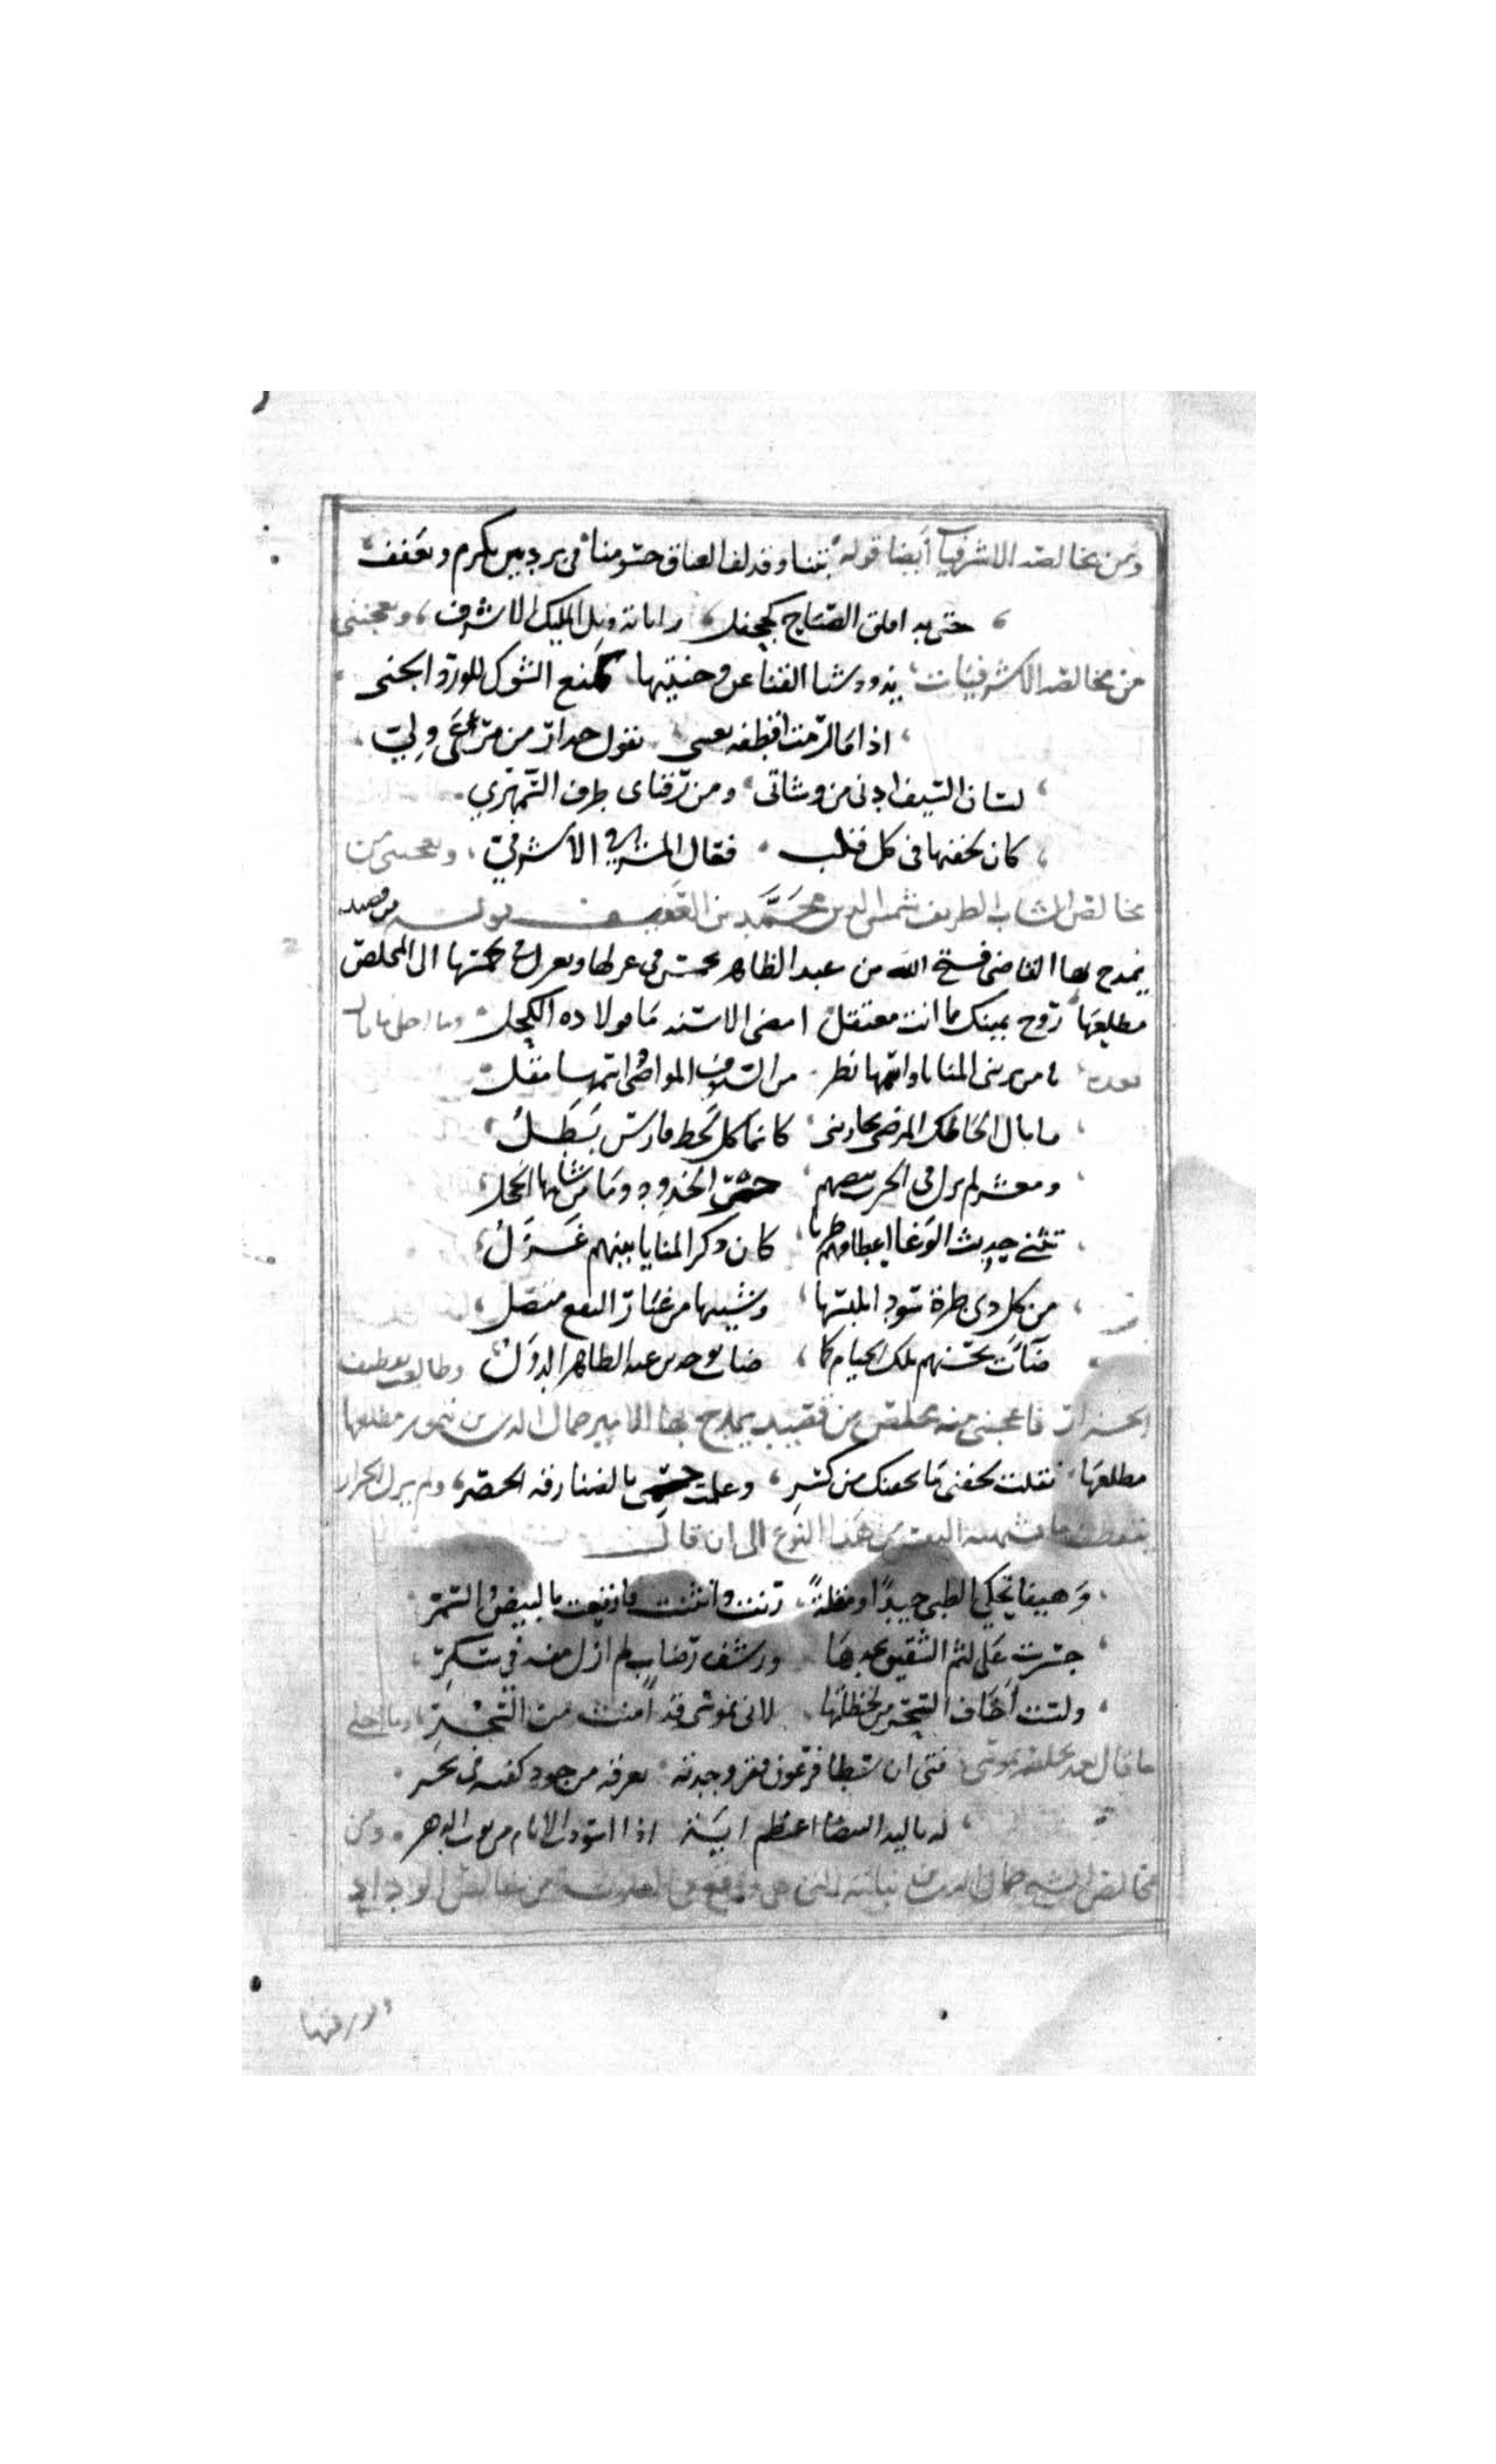 ومن مخالصه الاشرفيات أيضا قوله بتنا وقد لف العناق جسومنا في بردتين تكرم وتعفف
حتى بدا فلق الصباح كجحفل راياته رنك المليك الاشرف ويعجبني
من مخالصه الاشرفيات يذود شبا القنا عن وجنتيها كمنع الشوك للورد الجنى
اذا ما رمت اقطفه بعيني تقول حذار من مرعى وبي
لسان السيف ادنى من وشاتى ومن رقباى طرف السمهري
كان بجفنها في كل قلب فعال المشرفي الاشرفي ويعجبني من
مخالص الشاب الظريف شمس الدين محمد بن العفيف قوله من قصيد
يمدح بها القاضي فتح الله من عبد الظاهر في غزلها الى المخلص
مطلعها روح يمينك مما انت معتقل امضى الاسنة ما فولاذه الكحل وما احلى ما قال
بعده يا من يرينى المنايا واسمها نظر من السيوف المواضي اسمها مقل
ما بال الحاظك المرضى تحاربنى كانما كل لحظ فارس بطل
ومعشر لم تزل في الحرب بيضهم حمر الخدود وما من شانها الخجل
تثني حديث الوغا اعطافهم طربا كان ذكر المنايا بينهم غزل
من كل ذي طرة سود يلبسها وشيبها من غبار النقع منتصل
ضآت بحسنهم تلك الخيام كما ضات بوجد بن عبد الظاهر الدول وطالعت
الجزار فاعجبني منه مخلص من قصيد يمدح بها الامير جمال الدين بن يغمور مطلعها
مطلعها نقلت بجفنى ما بجفنك من كسر وعلمت جسمى بالضنا رقة الخصر ولم يزل الجزار
البيت من هذا النوع الى ان قال
وهيفا تحكي الظبي جيدا ومقلة رنت وانثنت فارتعت بالبيض والسمر
جسرت على لثم الشقيق بخدها ورشف رضاب لم ازل منه في سكر
ولست أخاف السحر من لحظاتها لانى بموسى قد امنت من السحر وما احلى
ما قال بعد مخلصه بموسى فتى ان سطا فرعون فقر وجدته يغرقه من جود كفيه في بحر
له باليد البيضا اعظم اية اذا اسودت الايام من نوب الدهر ومن
مخالص الشيخ جمال الدين بن نباته